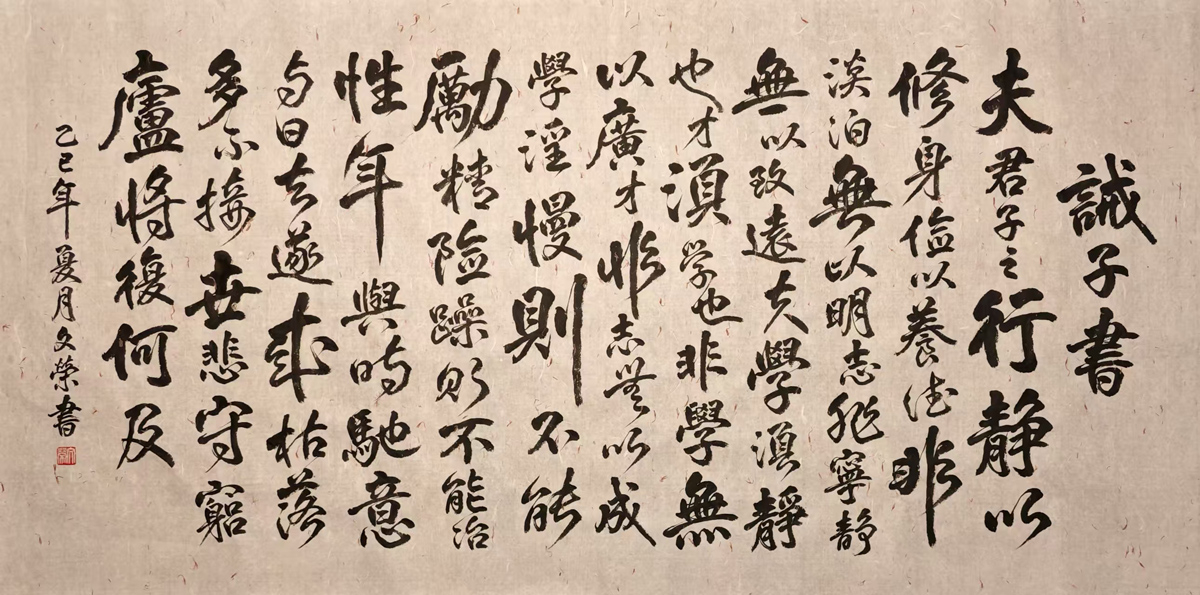 誡子書
夫君子之行静以
修身儉以養德非
淡泊無以明志非寧静
無以致遠夫學須靜
也才須学也非學無
以廣才非志無以成
學淫慢則不能
勵精險躁則不能治
性年與時馳意
与日去遂成枯落
多不接世悲守窮
廬將復何及
乙巳年夏月文榮書